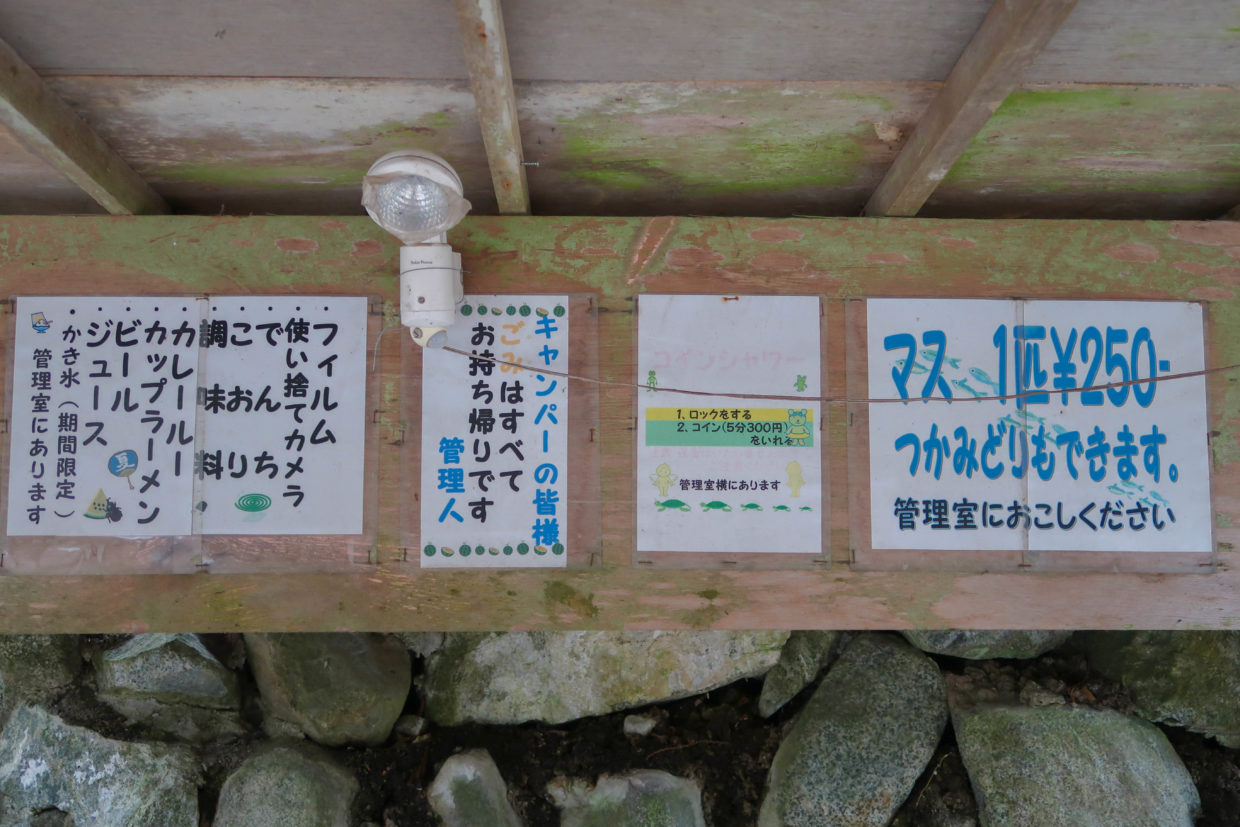 ・フィルム
・使い捨てカメラ
・でんち
・こおり
・調味料
・カレールー
・カップラーメン
・ビール
・ジュース
・かき氷(期間限定)
管理室にあります
夏
キャンパーの皆様
ごみはすべて
お持ち帰りです
管理人
コインシャワー
1、ロックをする
2、コイン(5分300円)
をいれる
管理室横にあります
マス 1匹¥250-
つかみどりもできます。
管理室におこしください